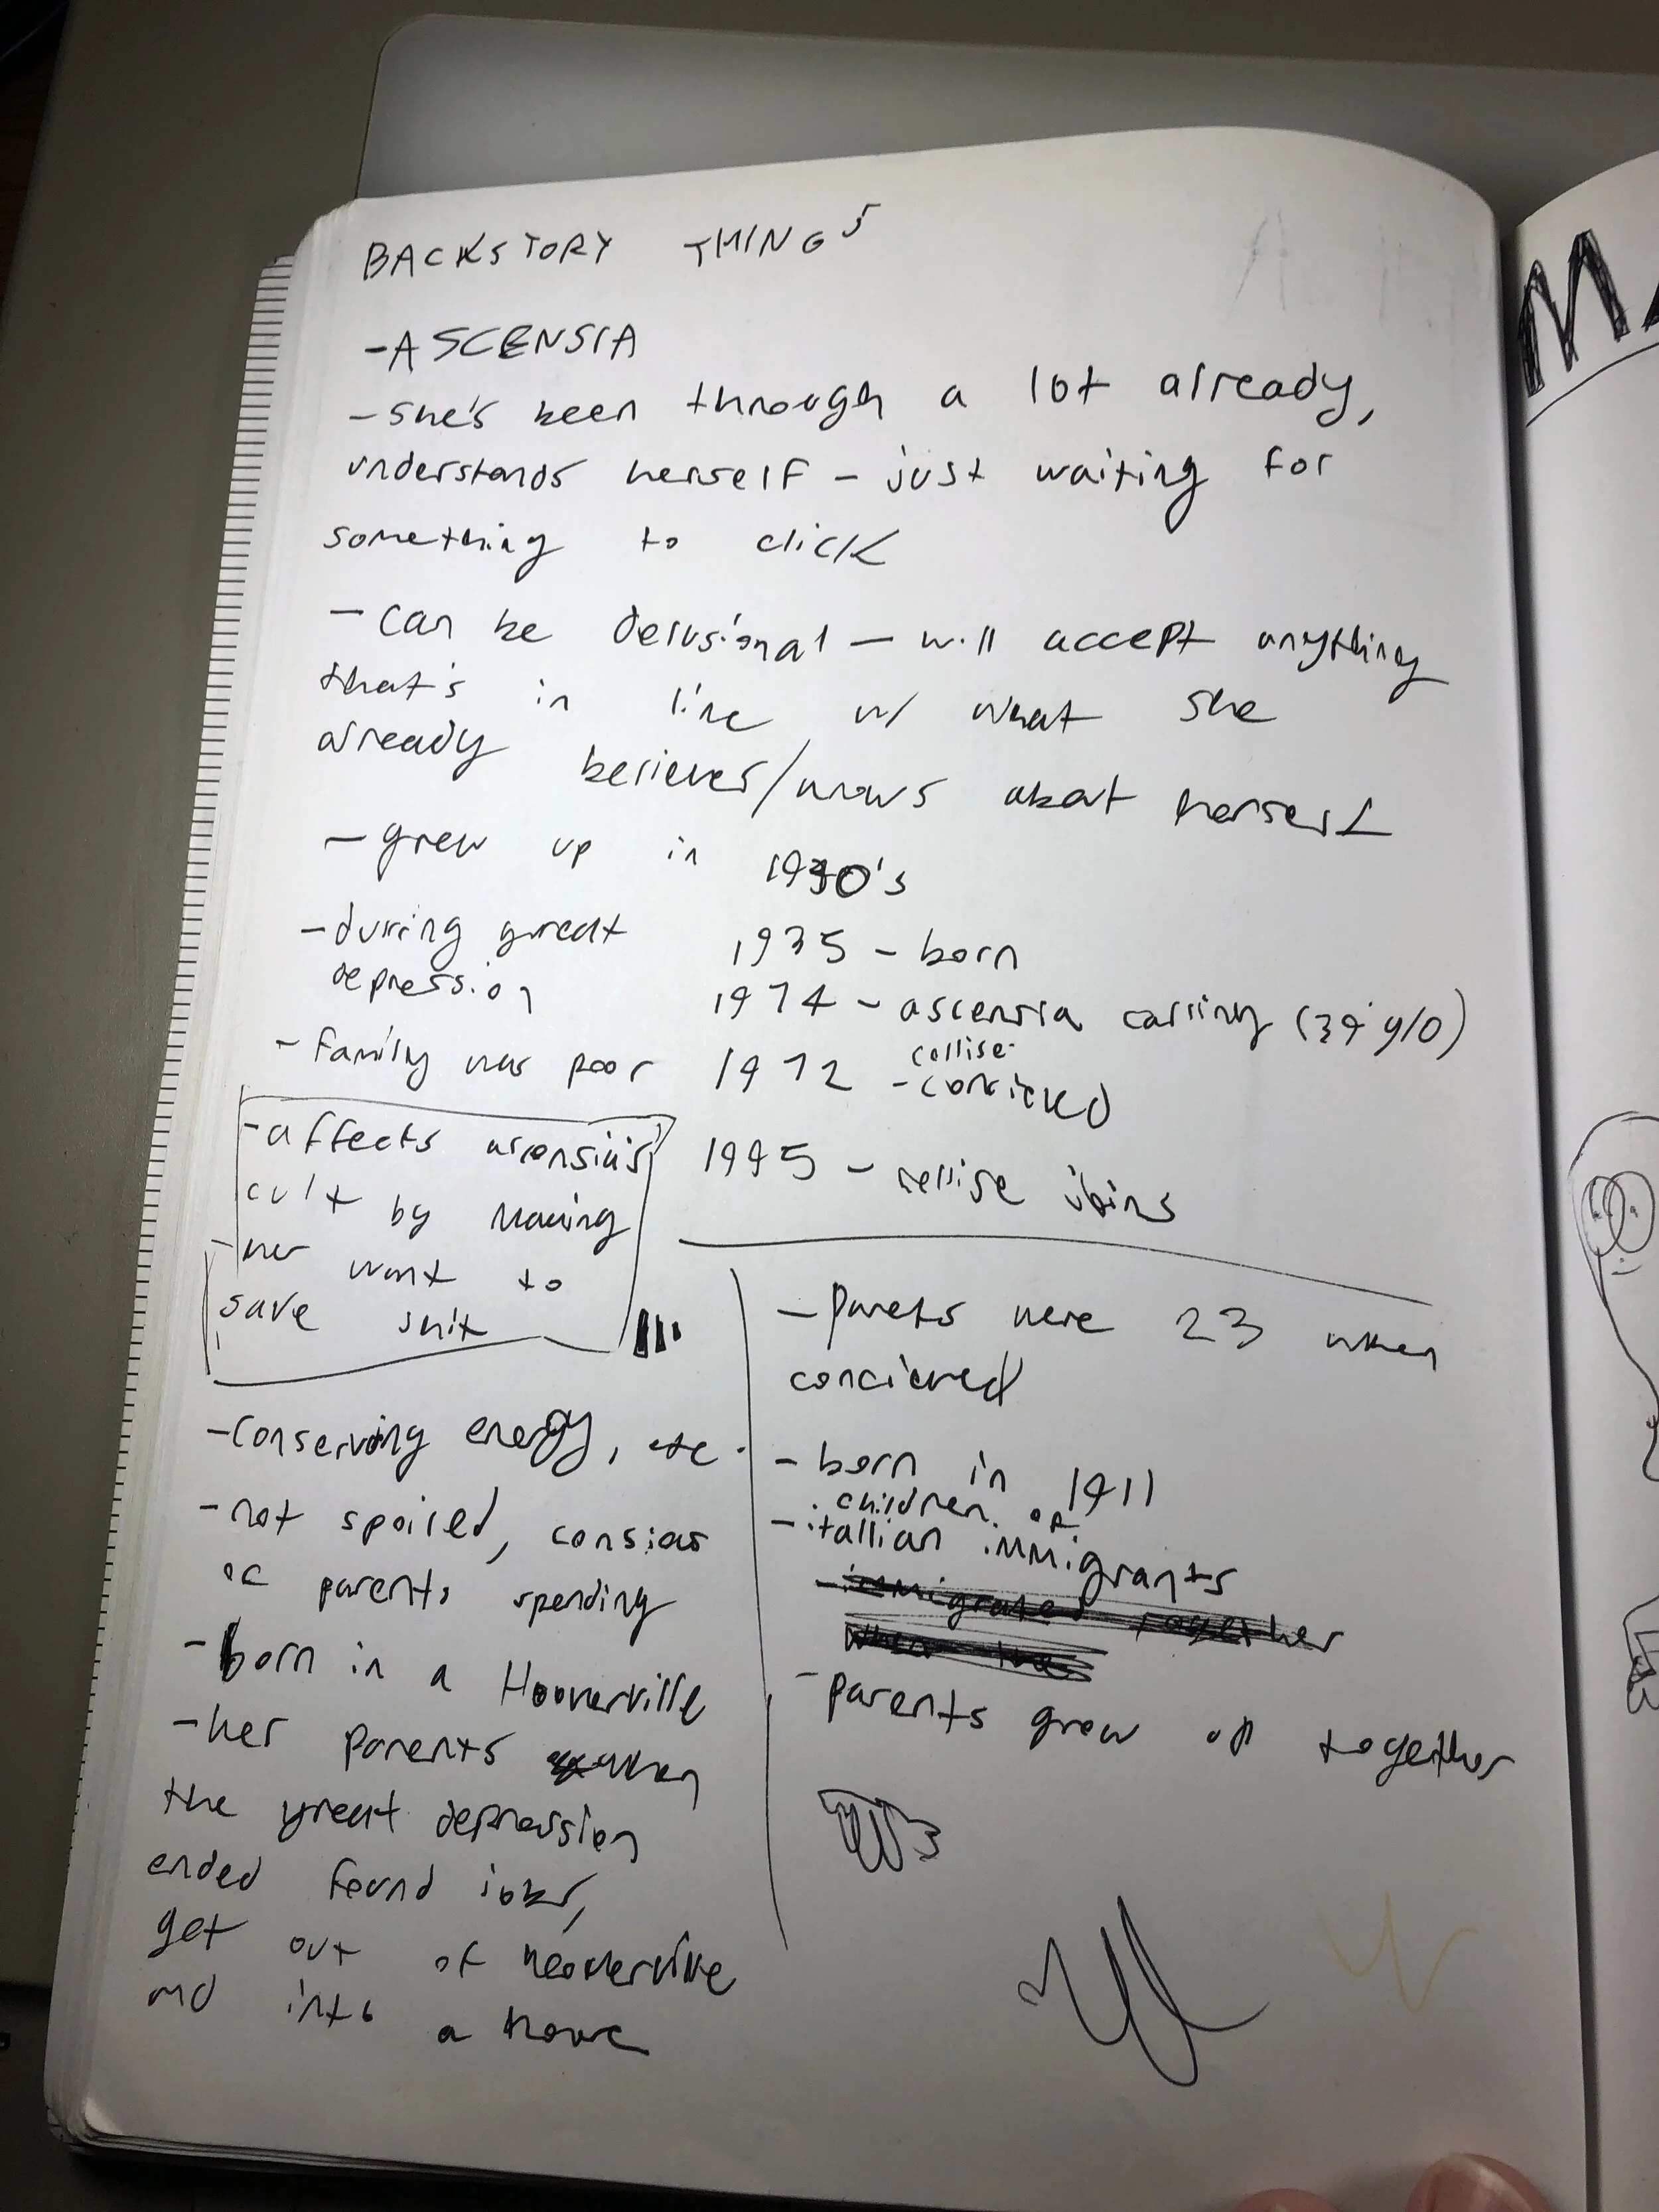 BACKSTORY THINGS
- ASCENSIA
- she's been through a lot already,
understands herself - just waiting for
something to click
- can be delusional - will accept anything
that's in line w/ what she
already believes/knows about herself
- grew up in 1930's
- during great
depression
- family was poor
1935 - born
1974 - ascensia calling (39 y/o)
1972 - concieved
1995 - joins
- affects ascensia's
cult by making
her want to
save shit
- conserving energy, etc.
- not spoiled, consious
of parents spending
- born in a Hooverville
- her parents when
the great depression
ended found jobs,
get out of hooverville
and into a home
- parets were 23 when
concieved
- born in 1911
children of
- itallian immigrants
- immigrated together
when the
- parents grew up together
M